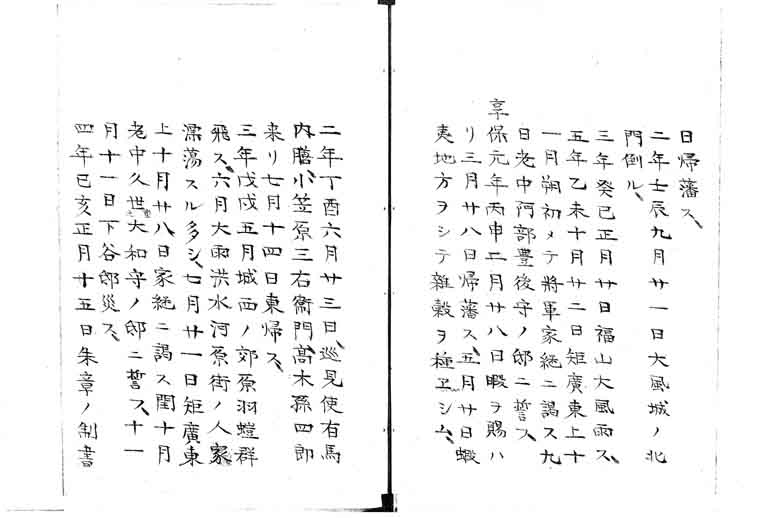 日帰藩ス、
二年壬辰九月廿一日大風城ノ北
門倒ル、
三年癸巳正月廿日福山大風雨ス、
五年乙未十月廿二日矩廣東上十
一月朔初メテ將軍家継ニ謁ス九
日老中阿部豊後守ノ邸ニ誓ス、
享保元年丙申二月廿八日暇ヲ賜ハ
リ三月廿八日帰藩ス、五月廿日蝦
夷地方ヲシテ雜穀ヲ種ヱシム、
二年丁酉六月廿三日、巡見使有馬
内膳、小笠原三右衞門、髙木孫四郎
来リ七月十四日東帰ス、
三年戊戌五月城西ノ郊原羽螘群
飛ス、六月大雨洪水河原街ノ人家
漂蕩スル多シ、七月廿一日矩廣東
上十月廿八日家継ニ謁ス閏十月
老中久世大和守ノ邸ニ誓ス、十一
月十一日下谷邸災ス、
四年己亥正月十五日朱章ノ制書